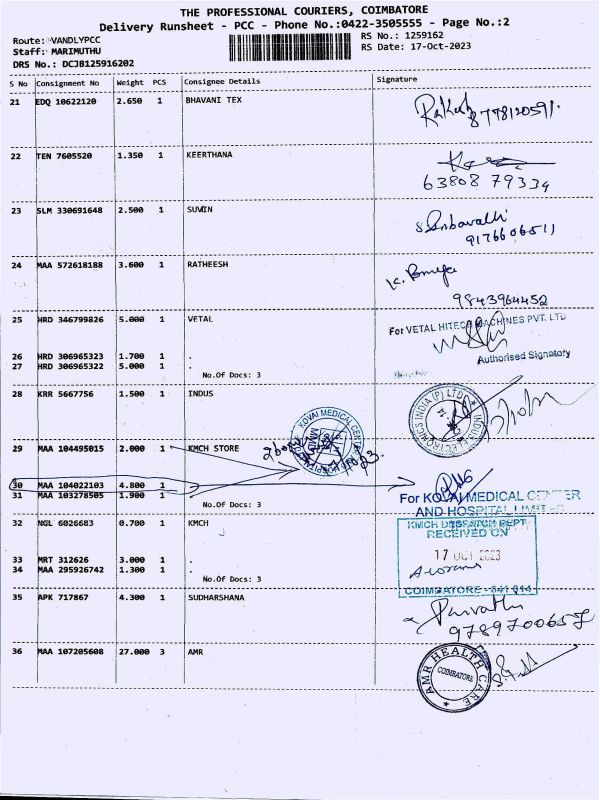 THE PROFESSIONAL COURIERS, COIMBATORE
Delivery Runsheet - PCC - Phone No.:0422-3505555 - Page No.:2
Route: VANDLYPCC
Staff: MARIMUTHU
DRS No.: DCJB125916202
RS No.: 1259162
RS Date: 17-Oct-2023
S No Consignment No Weight PCS Consignee Details Signature
21 EDQ 10622120 2.650 1 BHAVANI TEX
Rakesh 8778120591.
22 TEN 7605520 1.350 1 KEERTHANA
63808 79334
23 SLM 330691648 2.500 1 SUVIN
9176606511
24 MAA 572618188 3.600 1 RATHEESH
9843964452
25 HRD 346799826 5.000 1 VETAL
For VETAL HITECH MACHINES PVT. LTD
Authorised Signatory
26 HRD 306965323 1.700 1 .
27 HRD 306965322 5.000 1 .
No.Of Docs: 3
28 KRR 5667756 1.500 1 INDUS
INDUS ELECTRONICS INDIA (P) LTD
KOVAI MEDICAL CENTER
29 MAA 104495015 2.000 1 KMCH STORE
30 MAA 104022103 4.800 1
31 MAA 103278505 1.900 1
No.Of Docs: 3
For KOVAI MEDICAL CENTER
AND HOSPITAL LIMITED
32 NGL 6026683 0.700 1 KMCH
KMCH DESPATCH DEPT
RECEIVED ON
17 OCT 2023
COIMBATORE - 641 014
33 MRT 312626 3.000 1 .
34 MAA 295926742 1.300 1 .
No.Of Docs: 3
35 APK 717867 4.300 1 SUDHARSHANA
Parvathi
9789700657
36 MAA 107205608 27.000 3 AMR
AMR HEALTH CARE
COIMBATORE